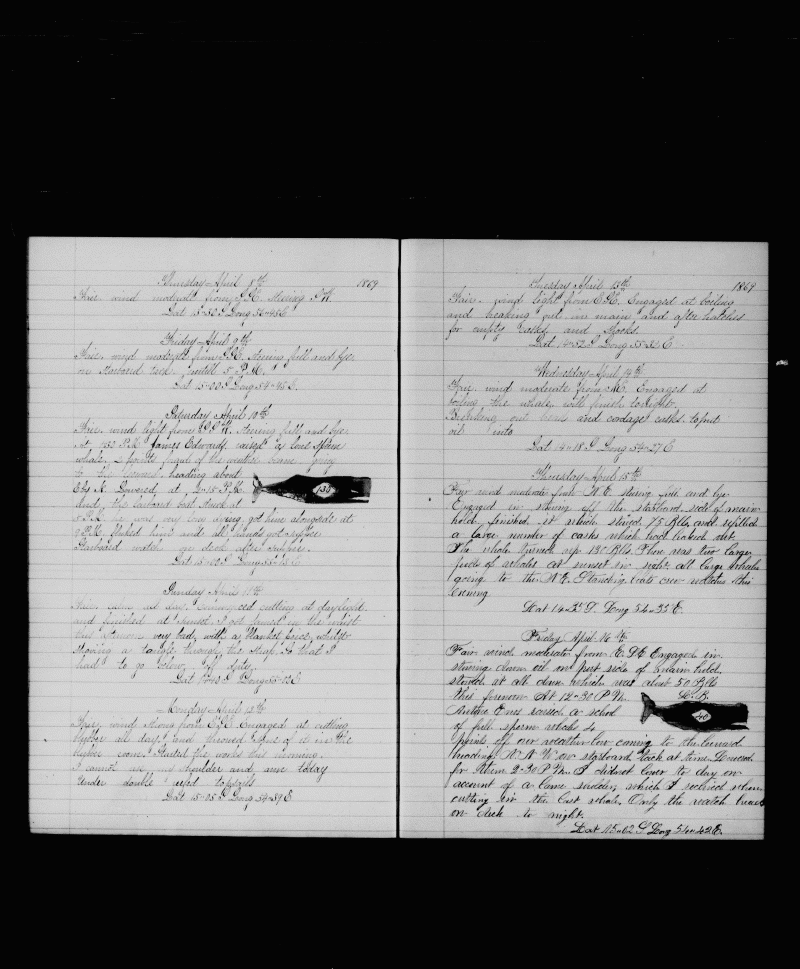 Thursday April 8th 1869
Fair wind moderate from S.E. steering
Lat 15-50 S Long 56-45 E
Friday April 9th
Fair, wind moderate from S.E. steering full and bye
on starboard tack untill 5 P.M.
Lat 15-00 S Long 54-45 E.
Saturday April 10th
Fair, wind light from steering full and bye
At P.M. James Edwards raised a lone sperm
whale, 2 points head of the weather beam going
to the leeward heading about
Lowered at 2-15 P.M.
135
and the larboard boat struck at
5 P.M. he was very long dying got him alongside at
P.M. fluked him and all hands got supper
Starboard watch on deck after supper.
Lat 15-00 S Long
Sunday April 11th
Commenced cutting at daylight
and finished at I got lamed in the waist
this afternoon very bad, with a blanket piece, whilst
shoving a toggle through the strap. So that I
had to go below off duty.
Lat S Long
Monday April 12th
Fair, wind from Engaged at cutting
blubber all day and throwed some of it in the
blubber room. Started the works this morning.
I cannot use my shoulder and arm today
Under double reefed topsails
Lat 15-05 S Long 54-59 E
Tuesday April 13th 1869
Fair. wind light from E.S.E. Engaged at boiling
and breaking out in main and after hatches
for empty casks and shooks.
Lat 14-52 S Long 55-32 E
Wednesday April 14th
Fair, wind moderate from Engaged at
boiling the whale, will finish tonight.
Breaking out and cordage casks to put
oil into
Lat 14-18 S Long 54-27 E
Thursday April 15th
Fair wind moderate from N.E. steering full and bye
Engaged in stowing off the starboard side of main
hold, finished it which stowed 75 Bbls, and refilled
a large number of casks which had leaked out.
The whale turned up 130 Bbls. There was two large
pods of whales at sunset in sight. all large whales
going to the N.E. Standing boats crew watches this
Evening
Lat 14 S. Long 54-35 E.
Friday April 16th
Fair wind moderate from Engaged in
stowing down oil on port side of main hold,
stowed it all down which was about 50 Bbls
this forenoon At 12-30 P.M.
L.B.
40
Antone Enos raised a school
of full sperm whales 4
points off our weather bow coming to the leeward
heading on starboard tack at time. Lowered
for them 2-30 P.M. I did not lower to day on
account of a lame shoulder, which I received when
cutting in the last whale. Only the watch
on deck to night.
Lat 15-02 S Long 54-42 E.